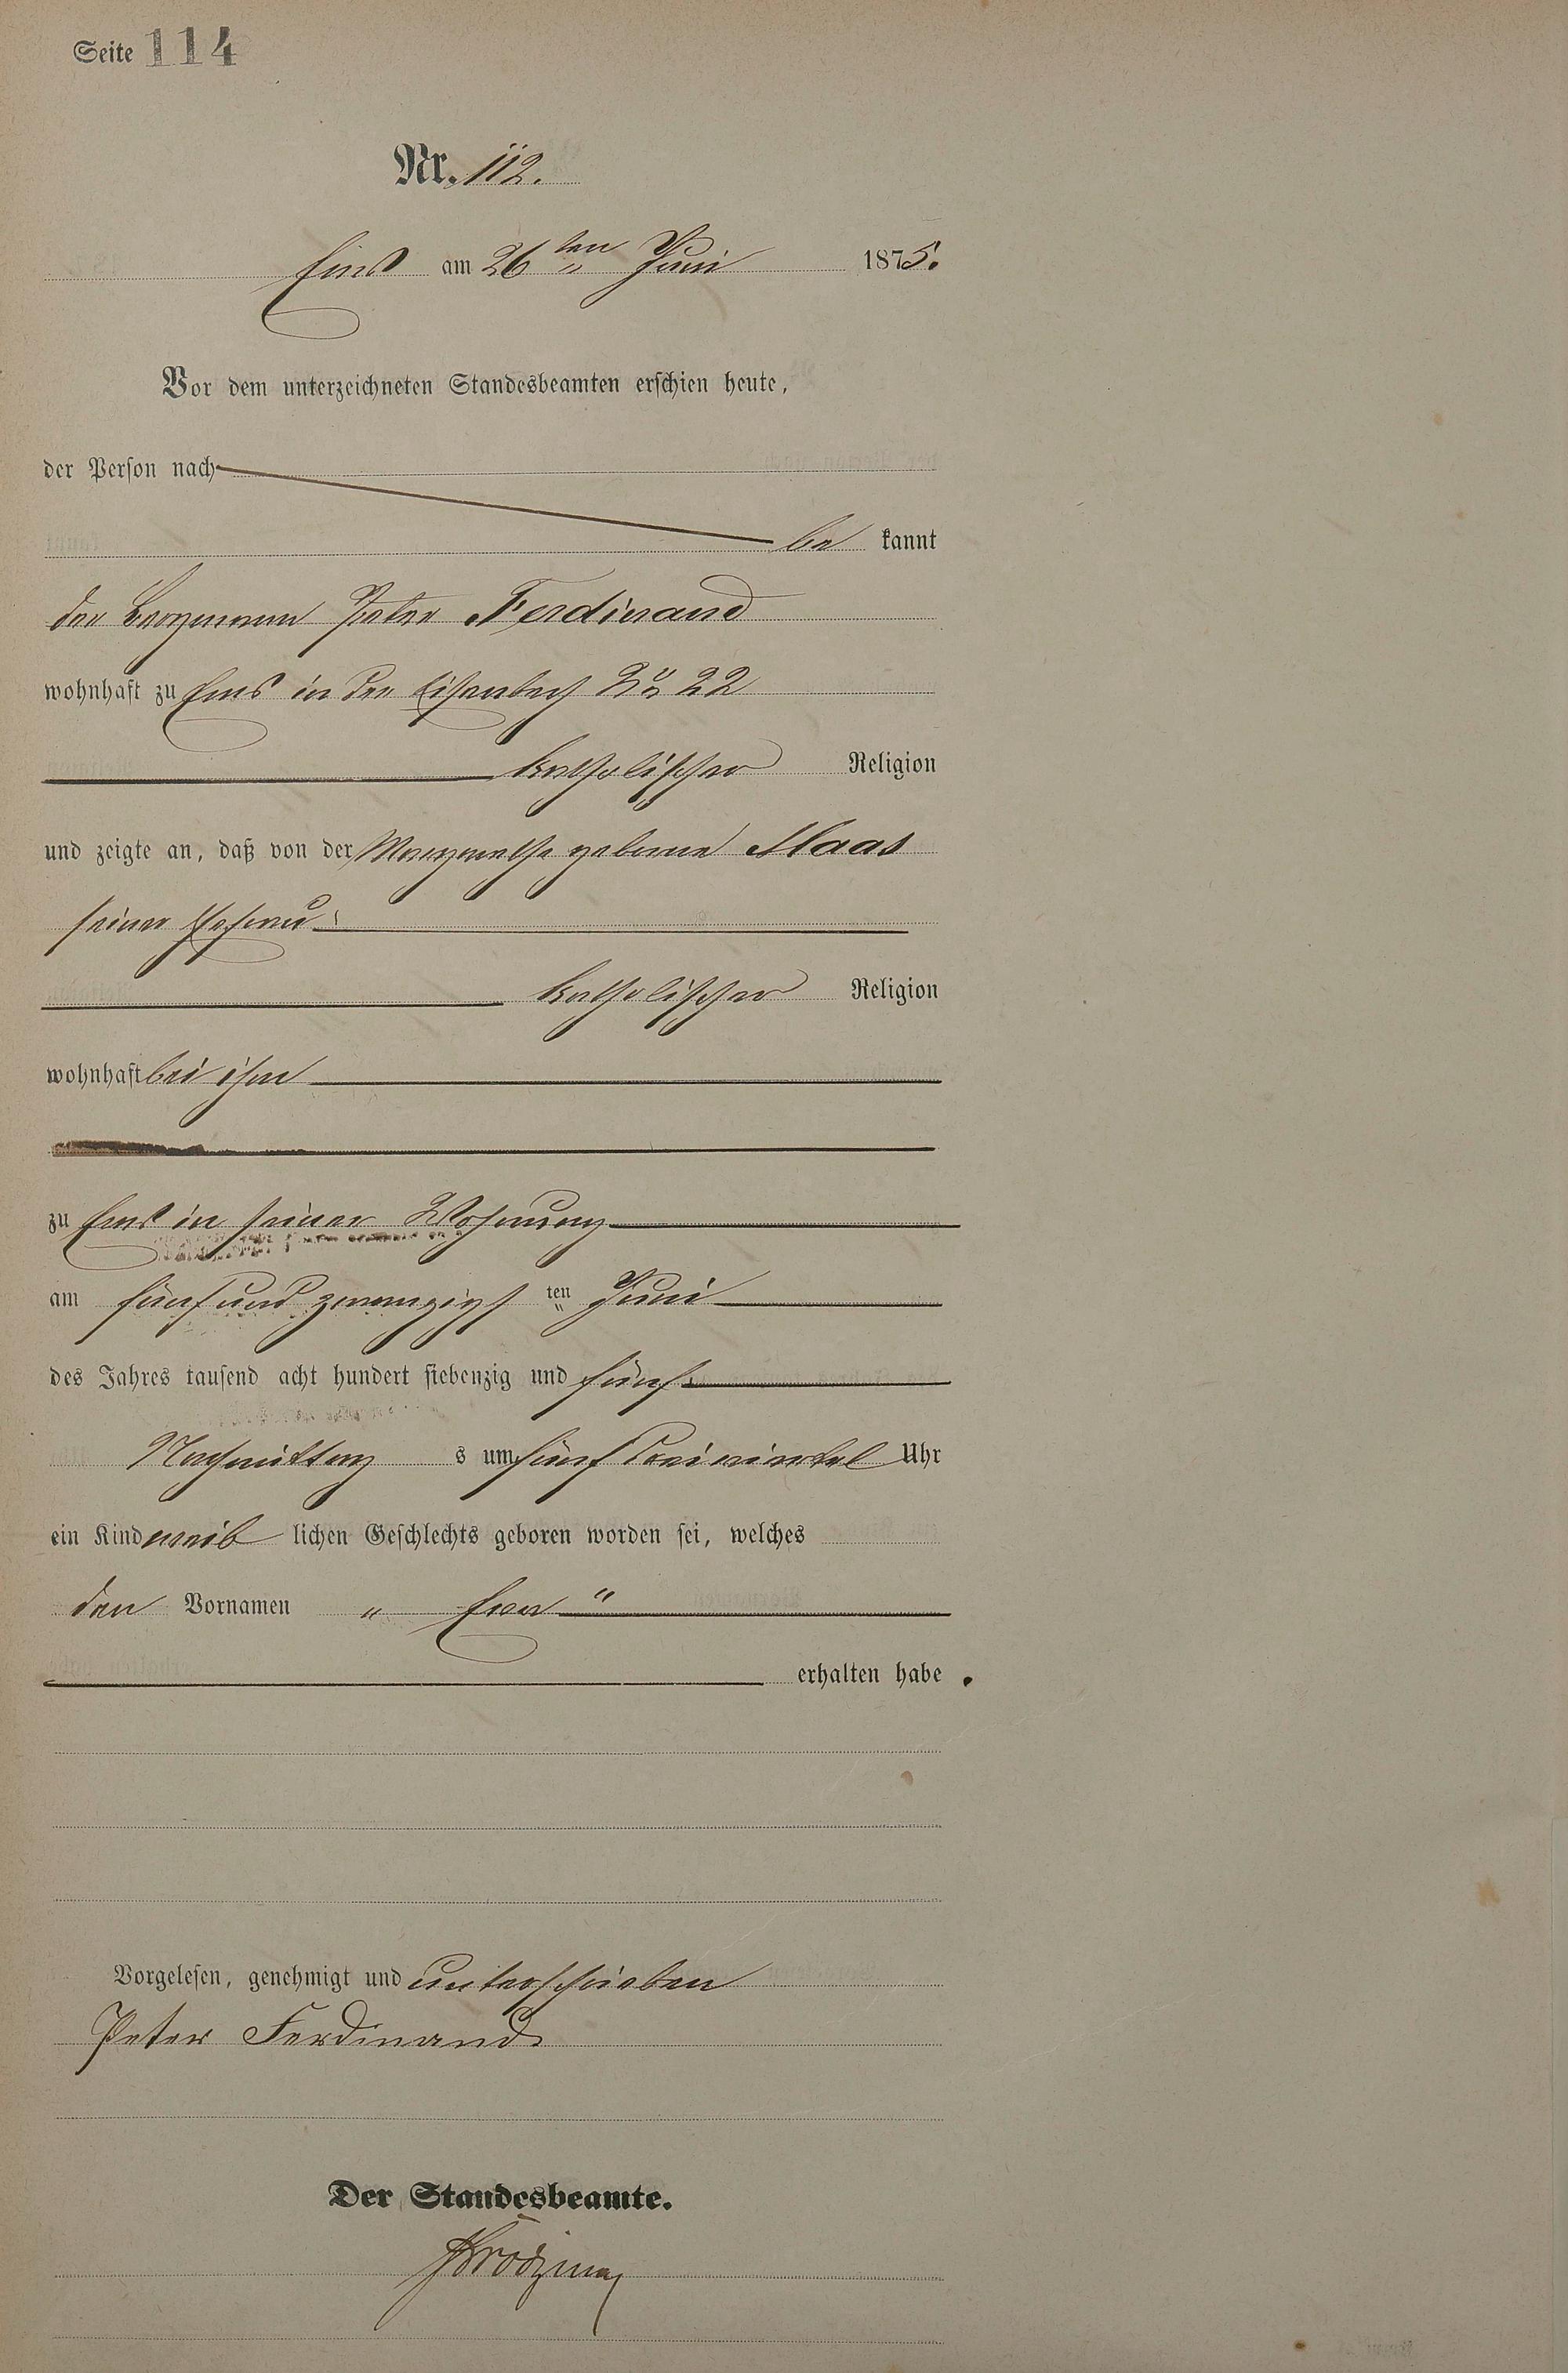 Seite 114
Nr. 112.
Ems am 26ten Juni 1875.
Vor dem unterzeichneten Standesbeamten erschien heute,
der Person nach
be kannt
der Bergmann Peter Ferdinand
wohnhaft zu Ems in der Eisenbach No 22
katholischer Religion
und zeigte an, daß von der Margarethe geborne Maas
seiner Ehefrau
katholischer Religion
wohnhaft bei ihm
zu Ems in seiner Wohnung
am fünfundzwanzigst ten Juni
des Jahres tausend acht hundert siebenzig und fünf
Nachmittag s um fünf dreiviertel Uhr
ein Kind weib lichen Geschlechts geboren worden sei, welches
den Vornamen " Eva "
erhalten habe.
Vorgelesen, genehmigt und unterschrieben
Peter Ferdinand
Der Standesbeamte.